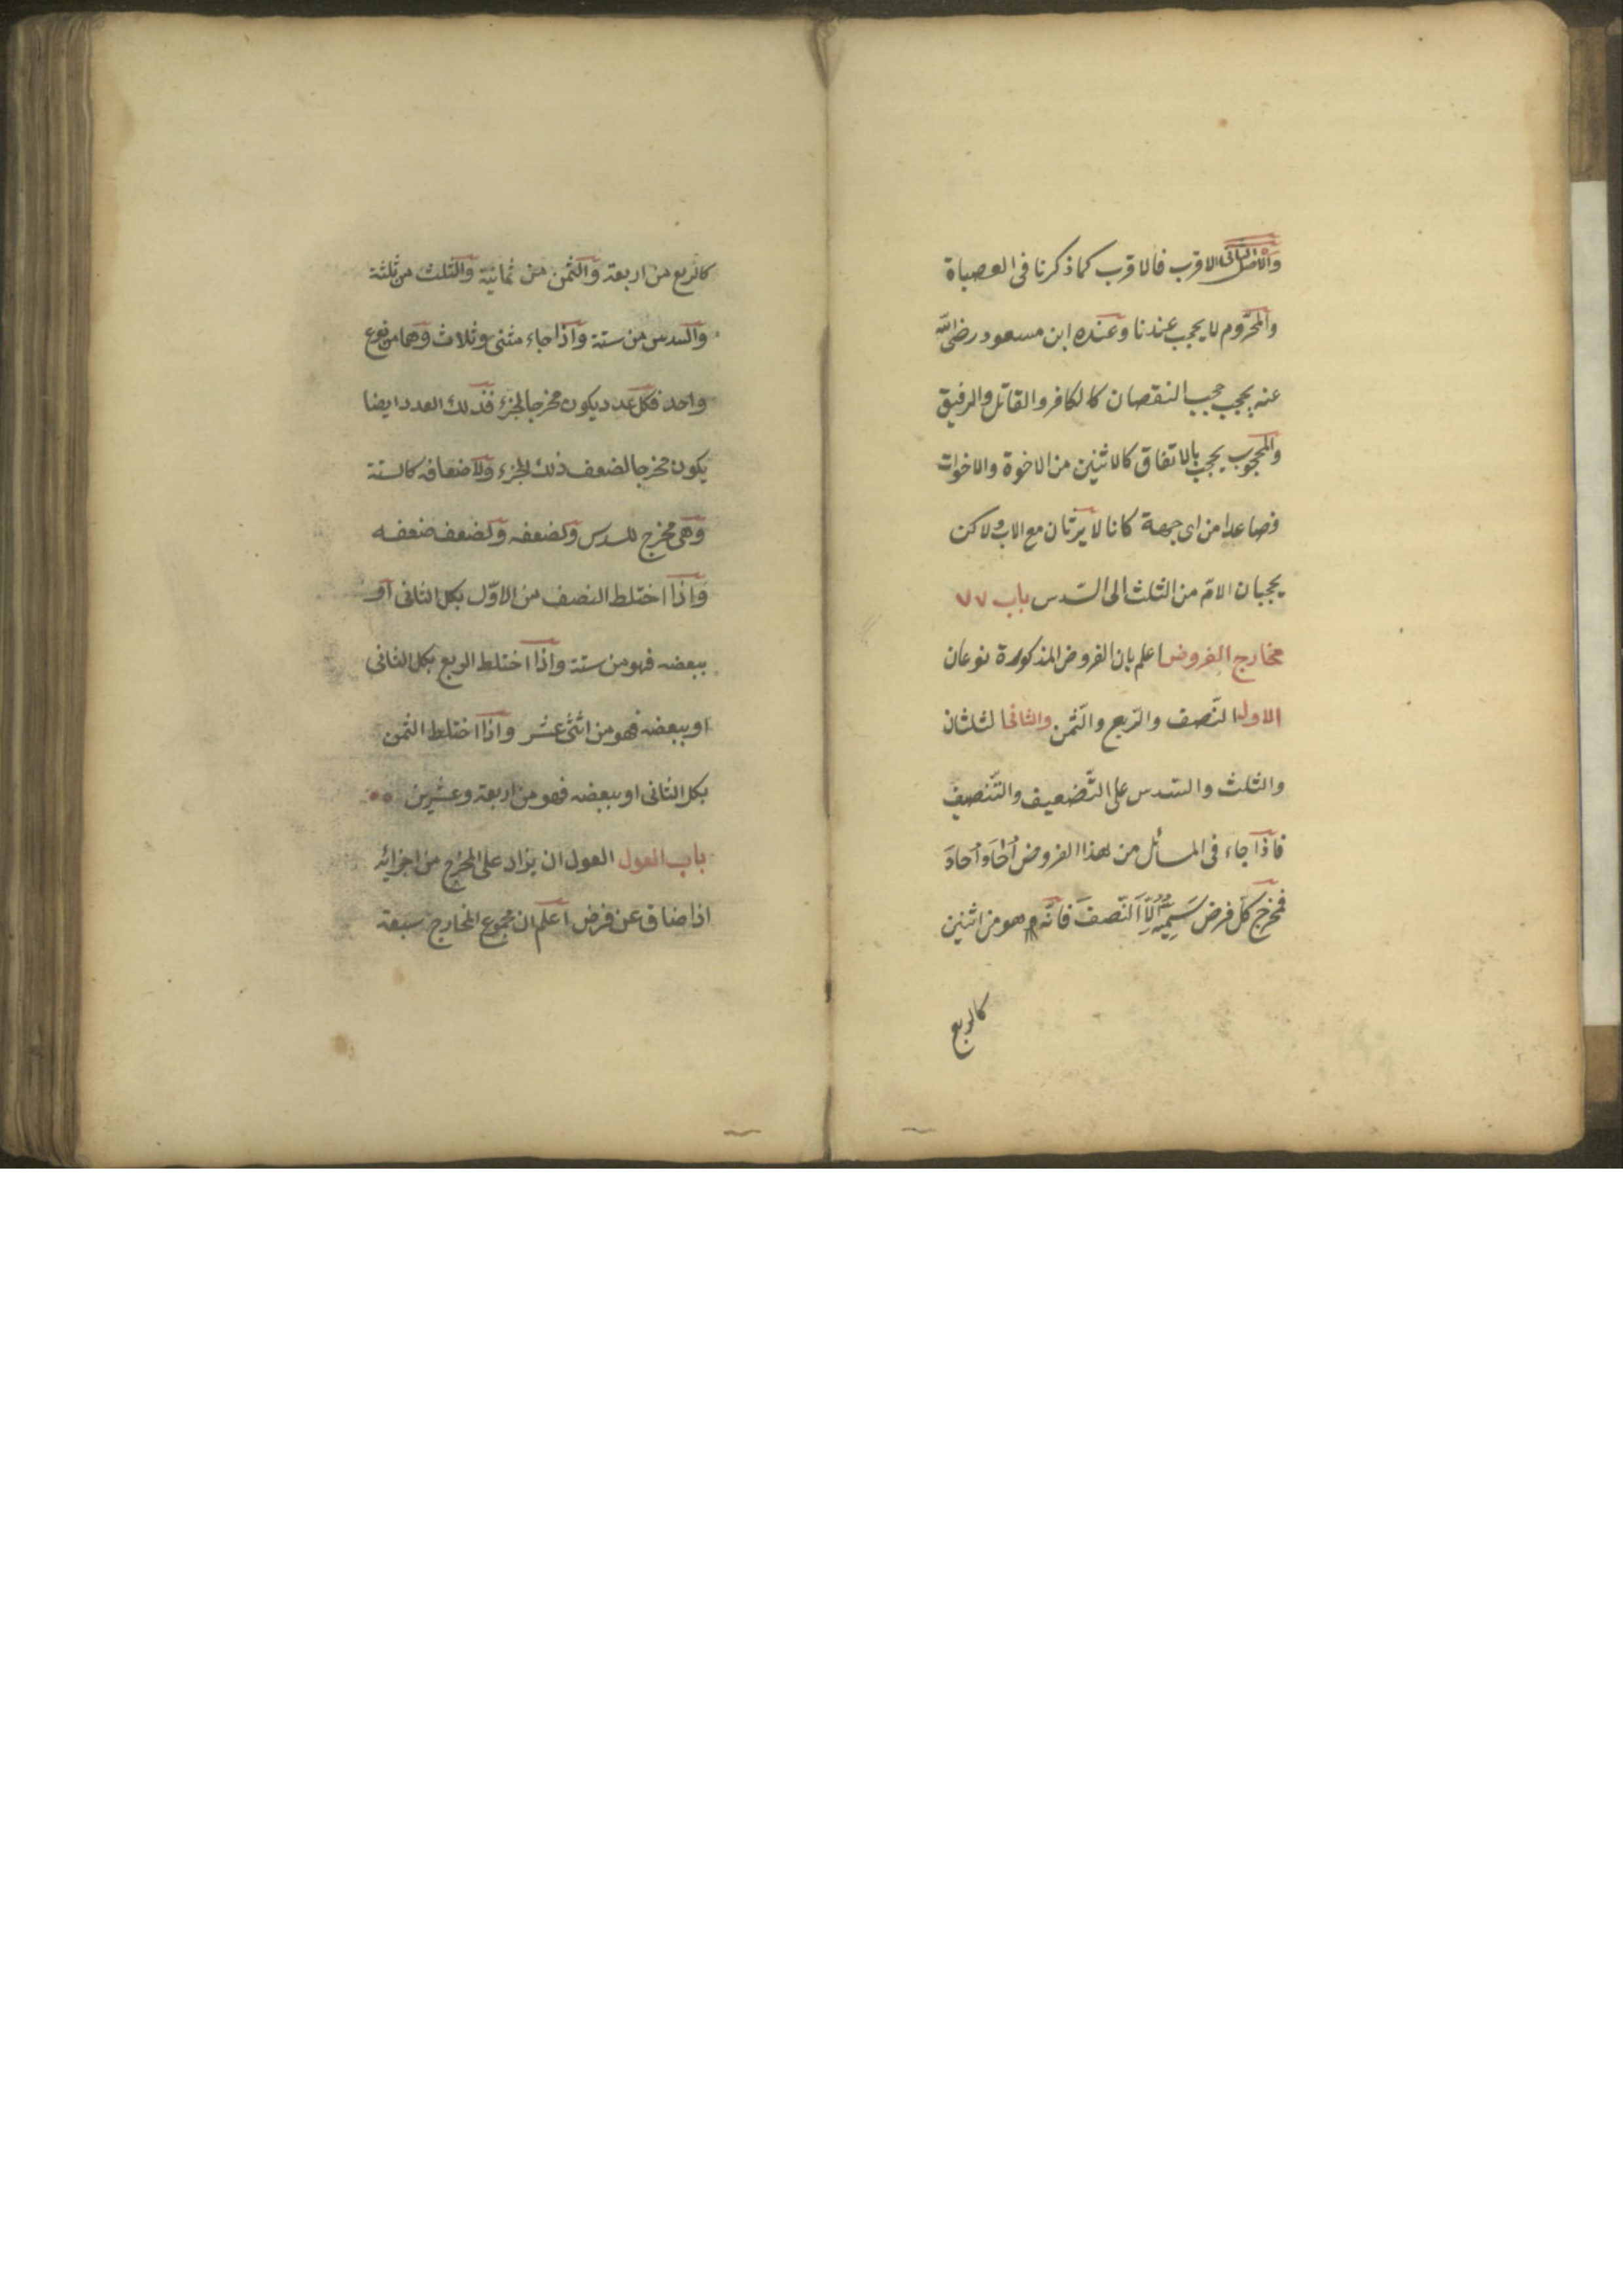 والاصل الثانى الاقرب فالاقرب كما ذكرنا فى العصباة
والمحروم لا يحجب عندنا وعنده ابن مسعود رضى الله
عنه يحجب حجب النقصان كالكافر والقاتل والرقيق
والمحجوب يحجب بالاتفاق كالاثنين من الاخوة والاخوات
فصاعدا من اى جهة كانا لا يرثان مع الاب ولاكن
يحجبان الامّ من الثلث الى السّدس باب ٧٧
مخارج الفروض اعلم بان الفروض المذكورة نوعان
الاول النّصف والرّبع والثّمن والثانى الثلثان
والثلث والسّدس على التّضعيف والتّنصيف
فاذا جاء فى المسائل من هذا الفروض اُحَاد اُحاد
فمخرج كلّ فرض سَمِيّه اِلّا النّصفَ فانّه وهو من اثنين
كالربع
كالربع من اربعة والثمن من ثمانية والثلث من ثلثة
والسدس من ستة واذا جاء مثنى وثلاث وهما من نوع
واحد فكل عدد يكون مخرجا لجزء فذلك العدد ايضا
يكون مخرجا لضعف ذلك الجزء ولاضعافه كالستة
وهى مخرج للسدس ولضعفه ولضعف ضعفه
واذا اختلط النصف من الاوّل بكل الثانى او
ببعضه فهو من ستة واذا اختلط الربع بكل الثانى
او ببعضه فهو من اثنى عشر واذا اختلط الثمن
بكل الثانى او ببعضه فهو من اربعة وعشرين
باب العول العول ان يزاد على المخرج من اجزائه
اذا ضاق عن فرض اعلم ان مجموع المخارج سبعة